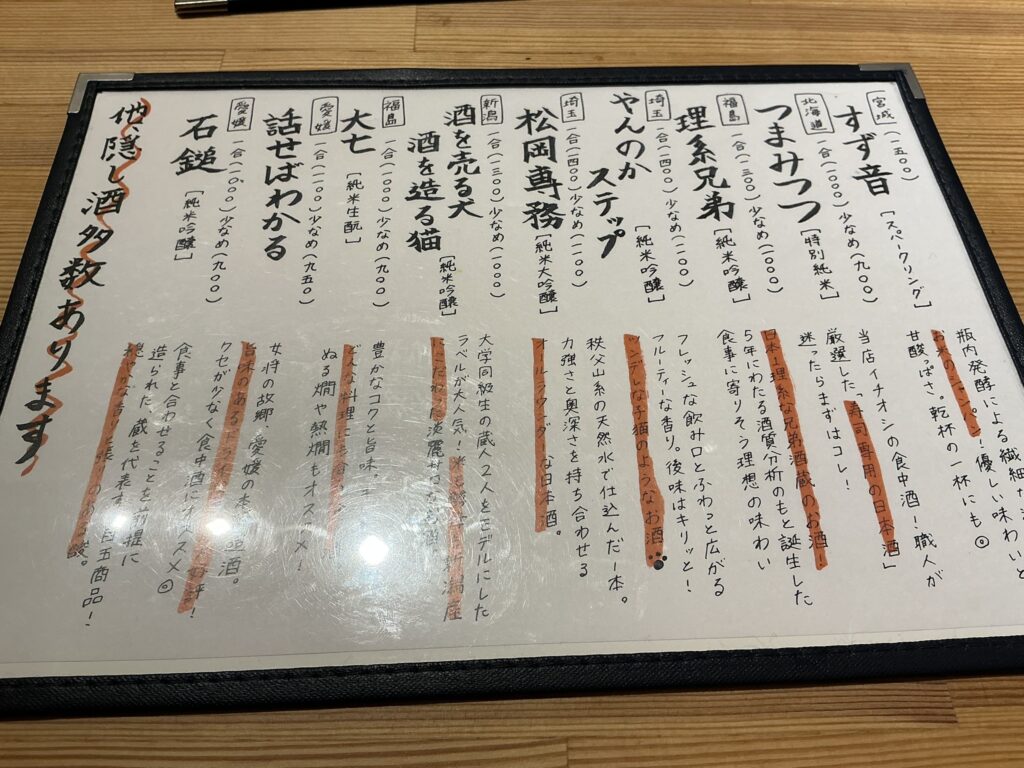 宮城 (一五〇〇)
すず音 [スパークリング]
瓶内発酵による繊細な
甘酸っぱさ。乾杯の一杯にも◎
お米のシャンパン!優しい味わいと
北海道 一合(一〇〇〇)少なめ(九〇〇)
つまみつつ [特別純米]
当店イチオシの食中酒!職人が
厳選した「寿司専用の日本酒」
迷ったらまずはコレ!
福島 一合(一三〇〇)少なめ(一〇〇〇)
理系兄弟 [純米吟醸]
日本1理系な兄弟酒蔵のお酒!
5年にわたる酒質分析のもと誕生した
食事に寄りそう理想の味わい
埼玉 一合(一四〇〇)少なめ(一一〇〇)
やんのか
ステップ [純米吟醸]
フレッシュな飲み口とふわっと広がる
フルーティーな香り。後味はキリッと!
ツンデレな子猫のようなお酒
埼玉 一合(一四〇〇)少なめ(一一〇〇)
松岡専務 [純米大吟醸]
秩父山系の天然水で仕込んだ一本。
力強さと奥深さを持ち合わせる
オールラウンダーな日本酒。
新潟 一合(一三〇〇)少なめ(一〇〇〇)
酒を売る犬
酒を造る猫 [純米吟醸]
大学同級生の蔵人2人をモデルにした
ラベルが大人気!米も 新潟産
にこだわった淡麗辛口なお酒。
福島 一合(一一〇〇)少なめ(九〇〇)
大七 [純米生酛]
豊かなコクと旨味。
どんな料理にも合
ぬる燗や熱燗もオススメ!
愛媛 一合(一一〇〇)少なめ(九五〇)
話せばわかる
女将の故郷、愛媛の本 酒。
旨味のあるドライ 好評!
クセが少なく食中酒にオススメ◎
愛媛 一合(一一〇〇)少なめ(九〇〇)
石鎚 [純米吟醸]
食事と合わせることを前提に
造られた、蔵を代表する 商品!
穏やかな香りと張りのある 酸。
他、隠し酒多数あります